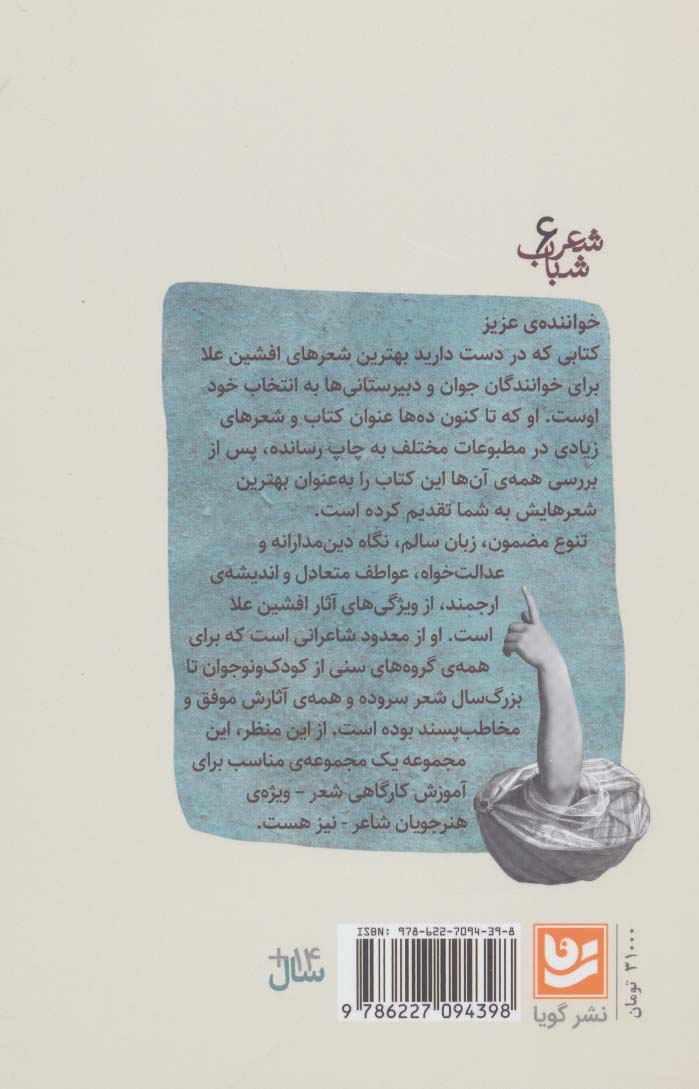 شعر
شباب ۶
خواننده‌ی عزیز
کتابی که در دست دارید بهترین شعرهای افشین علا
برای خوانندگان جوان و دبیرستانی‌ها به انتخاب خود
اوست. او که تا کنون ده‌ها عنوان کتاب و شعرهای
زیادی در مطبوعات مختلف به چاپ رسانده، پس از
بررسی همه‌ی آن‌ها این کتاب را به‌عنوان بهترین
شعرهایش به شما تقدیم کرده است.
تنوع مضمون، زبان سالم، نگاه دین‌مدارانه و
عدالت‌خواه، عواطف متعادل و اندیشه‌ی
ارجمند، از ویژگی‌های آثار افشین علا
است. او از معدود شاعرانی است که برای
همه‌ی گروه‌های سنی از کودک‌ونوجوان تا
بزرگ‌سال شعر سروده و همه‌ی آثارش موفق و
مخاطب‌پسند بوده است. از این منظر، این
مجموعه یک مجموعه‌ی مناسب برای
آموزش کارگاهی شعر - ویژه‌ی
هنرجویان شاعر - نیز هست.
۳۱۰۰۰ تومان
نشر گویا
ISBN: ۹۷۸-۶۲۲-۷۰۹۴-۳۹-۸
9 786227 094398
+۱۴
سال